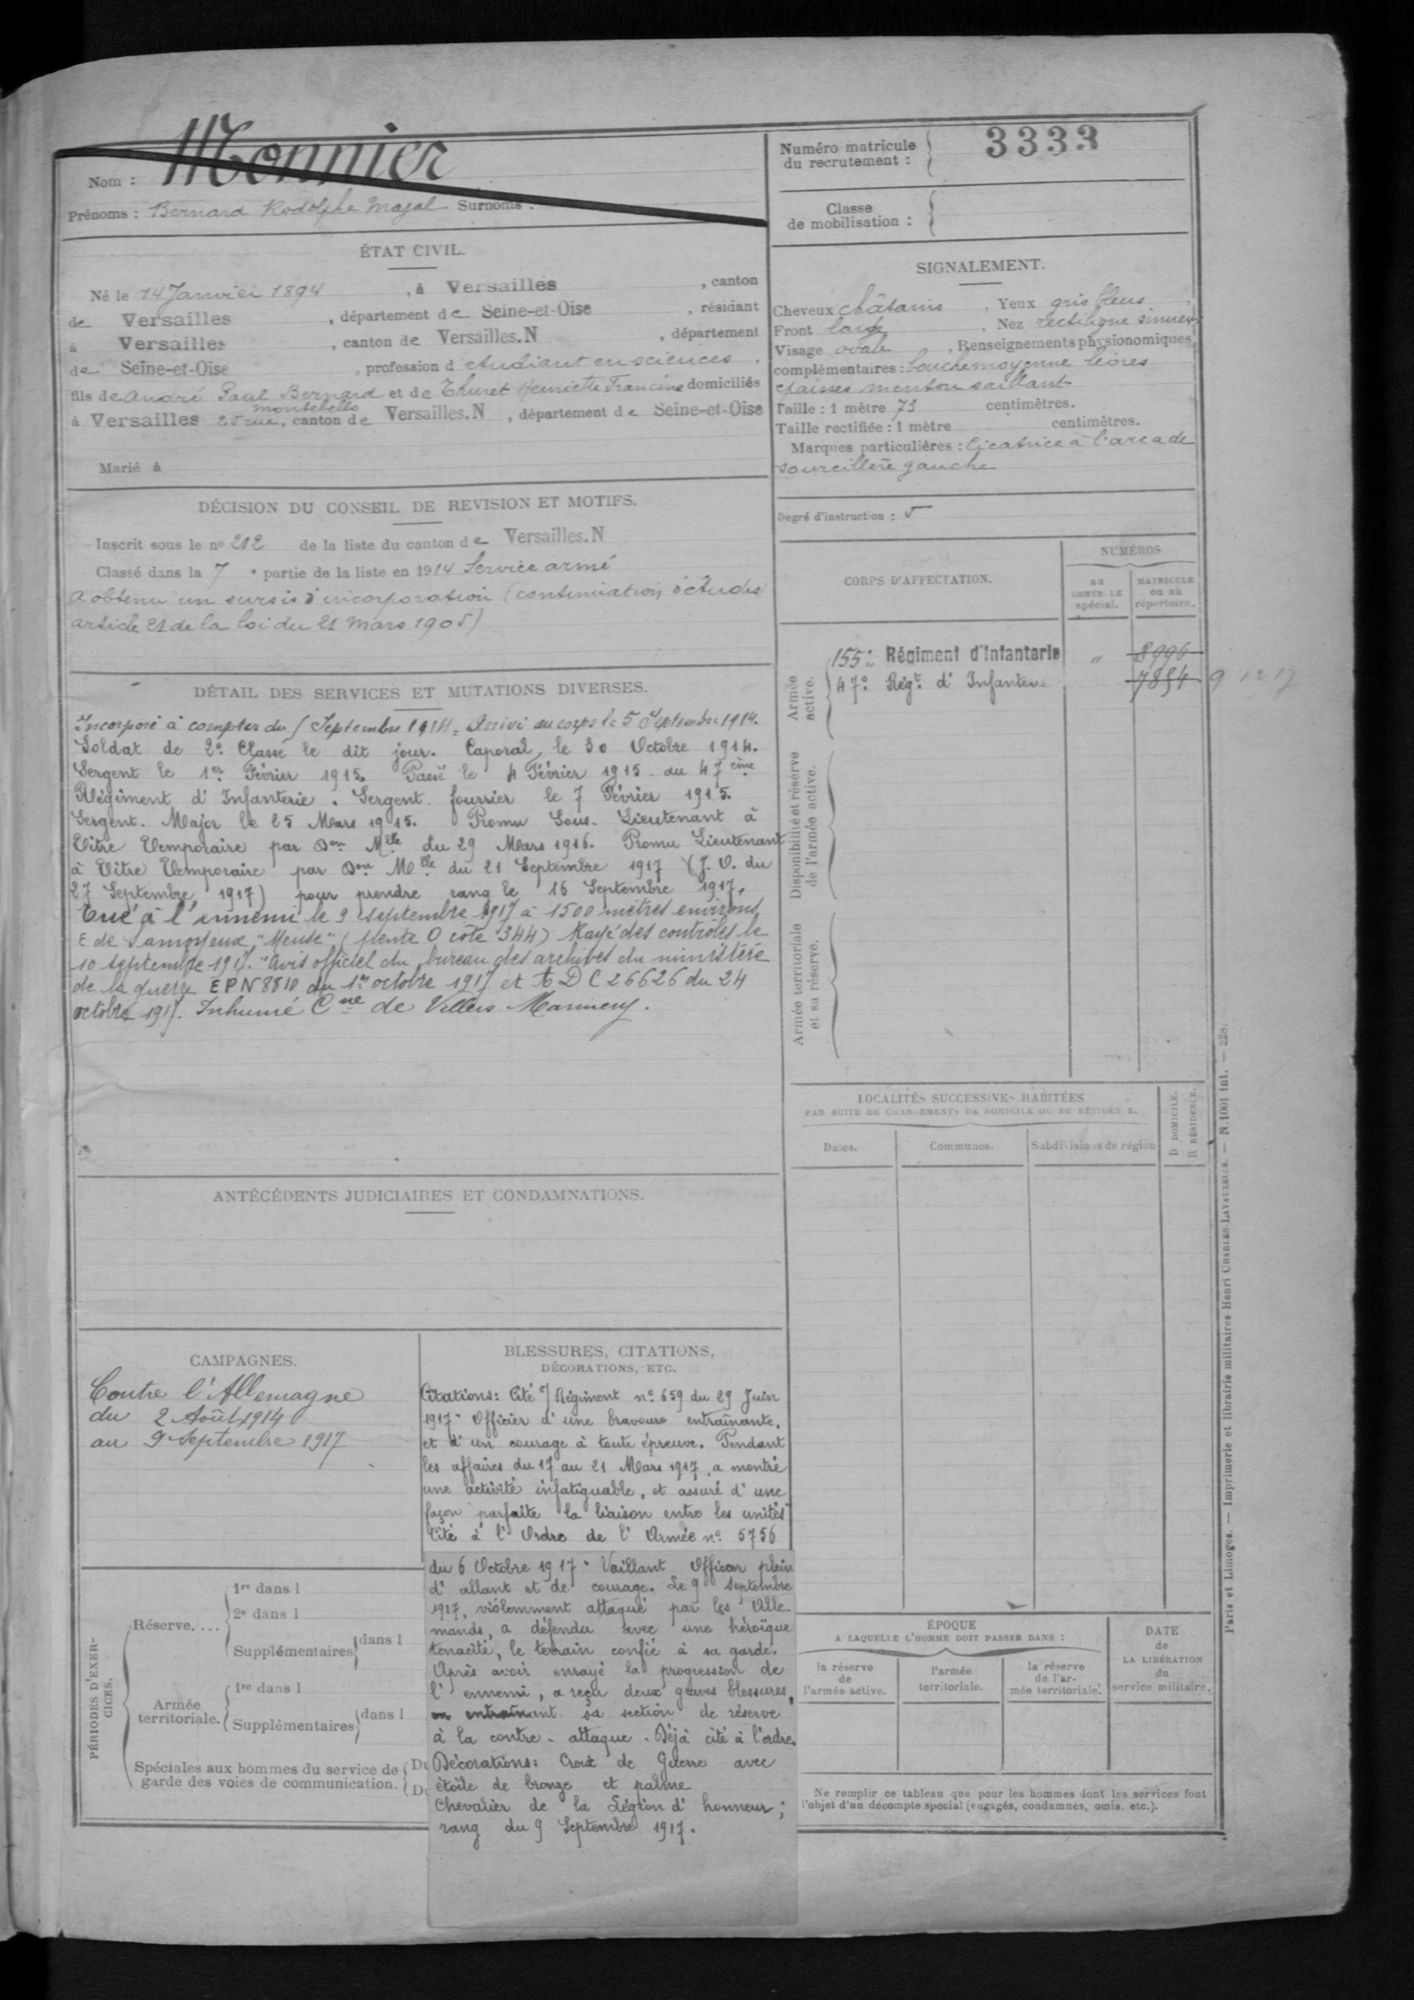 Nom : Monnier
Prénoms : Bernard Rodolphe Majal Surnoms :
Numéro matricule
du recrutement : 3333
Classe
de mobilisation :
ÉTAT CIVIL.
Né le 14 Janvier 1894, à Versailles, canton
de Versailles, département de Seine-et-Oise, résidant
à Versailles, canton de Versailles.N, département
de Seine-et-Oise, profession d'étudiant en sciences,
fils de André Paul Bernard et de Thuret Henriette Francine domiciliés
à Versailles 25 rue montebello, canton de Versailles.N, département de Seine-et-Oise
Marié à
SIGNALEMENT.
Cheveux châtains, Yeux gris bleus,
Front large, Nez rectiligne sinueux
Visage ovale, Renseignements physionomiques
complémentaires : bouche moyenne lèvres
épaisses menton saillant
Taille : 1 mètre 73 centimètres.
Taille rectifiée : 1 mètre centimètres.
Marques particulières : Cicatrice à l'arcade
sourcillère gauche
Degré d'instruction : 5
DÉCISION DU CONSEIL DE REVISION ET MOTIFS.
Inscrit sous le no 212 de la liste du canton de Versailles.N
Classé dans la 7e partie de la liste en 1914 Service armé
a obtenu un sursis d'incorporation (continuation d'études
article 21 de la loi du 21 mars 1905)
DÉTAIL DES SERVICES ET MUTATIONS DIVERSES.
Incorporé à compter du Septembre 1914. Arrivé au corps le 5 Septembre 1914.
Soldat de 2e Classe le dit jour. Caporal, le 30 Octobre 1914.
Sergent le 1er Février 1915. Passé le 4 Février 1915 du 47ème
Régiment d'Infanterie. Sergent fourrier le 7 Février 1915.
Sergent-Major le 25 Mars 1915. Promu Sous-Lieutenant à
Titre Temporaire par Don Mlle du 29 Mars 1916. Promu Lieutenant
à Titre Temporaire par Don Mlle du 21 Septembre 1917 (J.O. du
27 Septembre 1917) pour prendre rang le 16 Septembre 1917.
Tué à l'ennemi le 9 septembre 1917 à 1500 mètres environs
E de Samogneux "Meuse" (pente O cote 344) Rayé des contrôles le
10 septembre 1917. "Avis officiel du bureau des archives du ministère
de la guerre EPN 8810 du 1er octobre 1917 et DC 26626 du 24
octobre 1917. Inhumé Cne de Villers Marmery.
CORPS D'AFFECTATION.
NUMÉROS
au
CONTRÔLE
spécial.
MATRICULE
ou au
répertoire.
Armée
active.
155e Régiment d'Infanterie " 8996
47e Régt d'Infanterie 7854 9 12 17
Disponibilité et réserve
de l'armée active.
Armée territoriale
et sa réserve.
LOCALITÉS SUCCESSIVES HABITÉES
PAR SUITE DE CHANGEMENTS DE DOMICILE OU DE RÉSIDENCE.
Dates.
Communes.
Subdivisions de région
D DOMICILE.
R RÉSIDENCE.
ANTÉCÉDENTS JUDICIAIRES ET CONDAMNATIONS.
CAMPAGNES.
Contre l'Allemagne
du 2 Août 1914
au 9 Septembre 1917
BLESSURES, CITATIONS,
DÉCORATIONS, ETC.
Citations: Cité O/ Régiment no 659 du 29 Juin
1917 " Officier d'une bravoure entraînante,
et d'un courage à toute épreuve. Pendant
les affaires du 17 au 21 Mars 1917, a montré
une activité infatiguable, et assuré d'une
façon parfaite la liaison entre les unités"
Cité à l'Ordre de l'Armée no 5756
du 6 Octobre 1917 " Vaillant Officier plein
d'allant et de courage. Le 9 septembre
1917, violemment attaqué par les Alle-
mands, a défendu avec une héroïque
tenacité, le terrain confié à sa garde.
Après avoir enrayé la progression de
l'ennemi, a reçu deux graves blessures,
en entraînant sa section de réserve
à la contre-attaque. Déjà cité à l'ordre.
Décorations: Croix de Guerre avec
étoile de bronze et palme
Chevalier de la Légion d'honneur;
rang du 9 Septembre 1917.
PÉRIODES D'EXER-
CICES.
Réserve....
1re dans l
2e dans l
Supplémentaires dans l
Armée
territoriale.
1re dans l
Supplémentaires dans l
Spéciales aux hommes du service de
garde des voies de communication.
Du
Du
ÉPOQUE
A LAQUELLE L'HOMME DOIT PASSER DANS :
la réserve
de
l'armée active.
l'armée
territoriale.
la réserve
de l'ar-
mée territoriale.
DATE
de
LA LIBÉRATION
du
service militaire.
Ne remplir ce tableau que pour les hommes dont les services font
l'objet d'un décompte spécial (engagés, condamnés, omis, etc.).
Paris et Limoges. — Imprimerie et librairie militaires Henri CHARLES-LAVAUZELLE. — N. 1001 int. — 228.